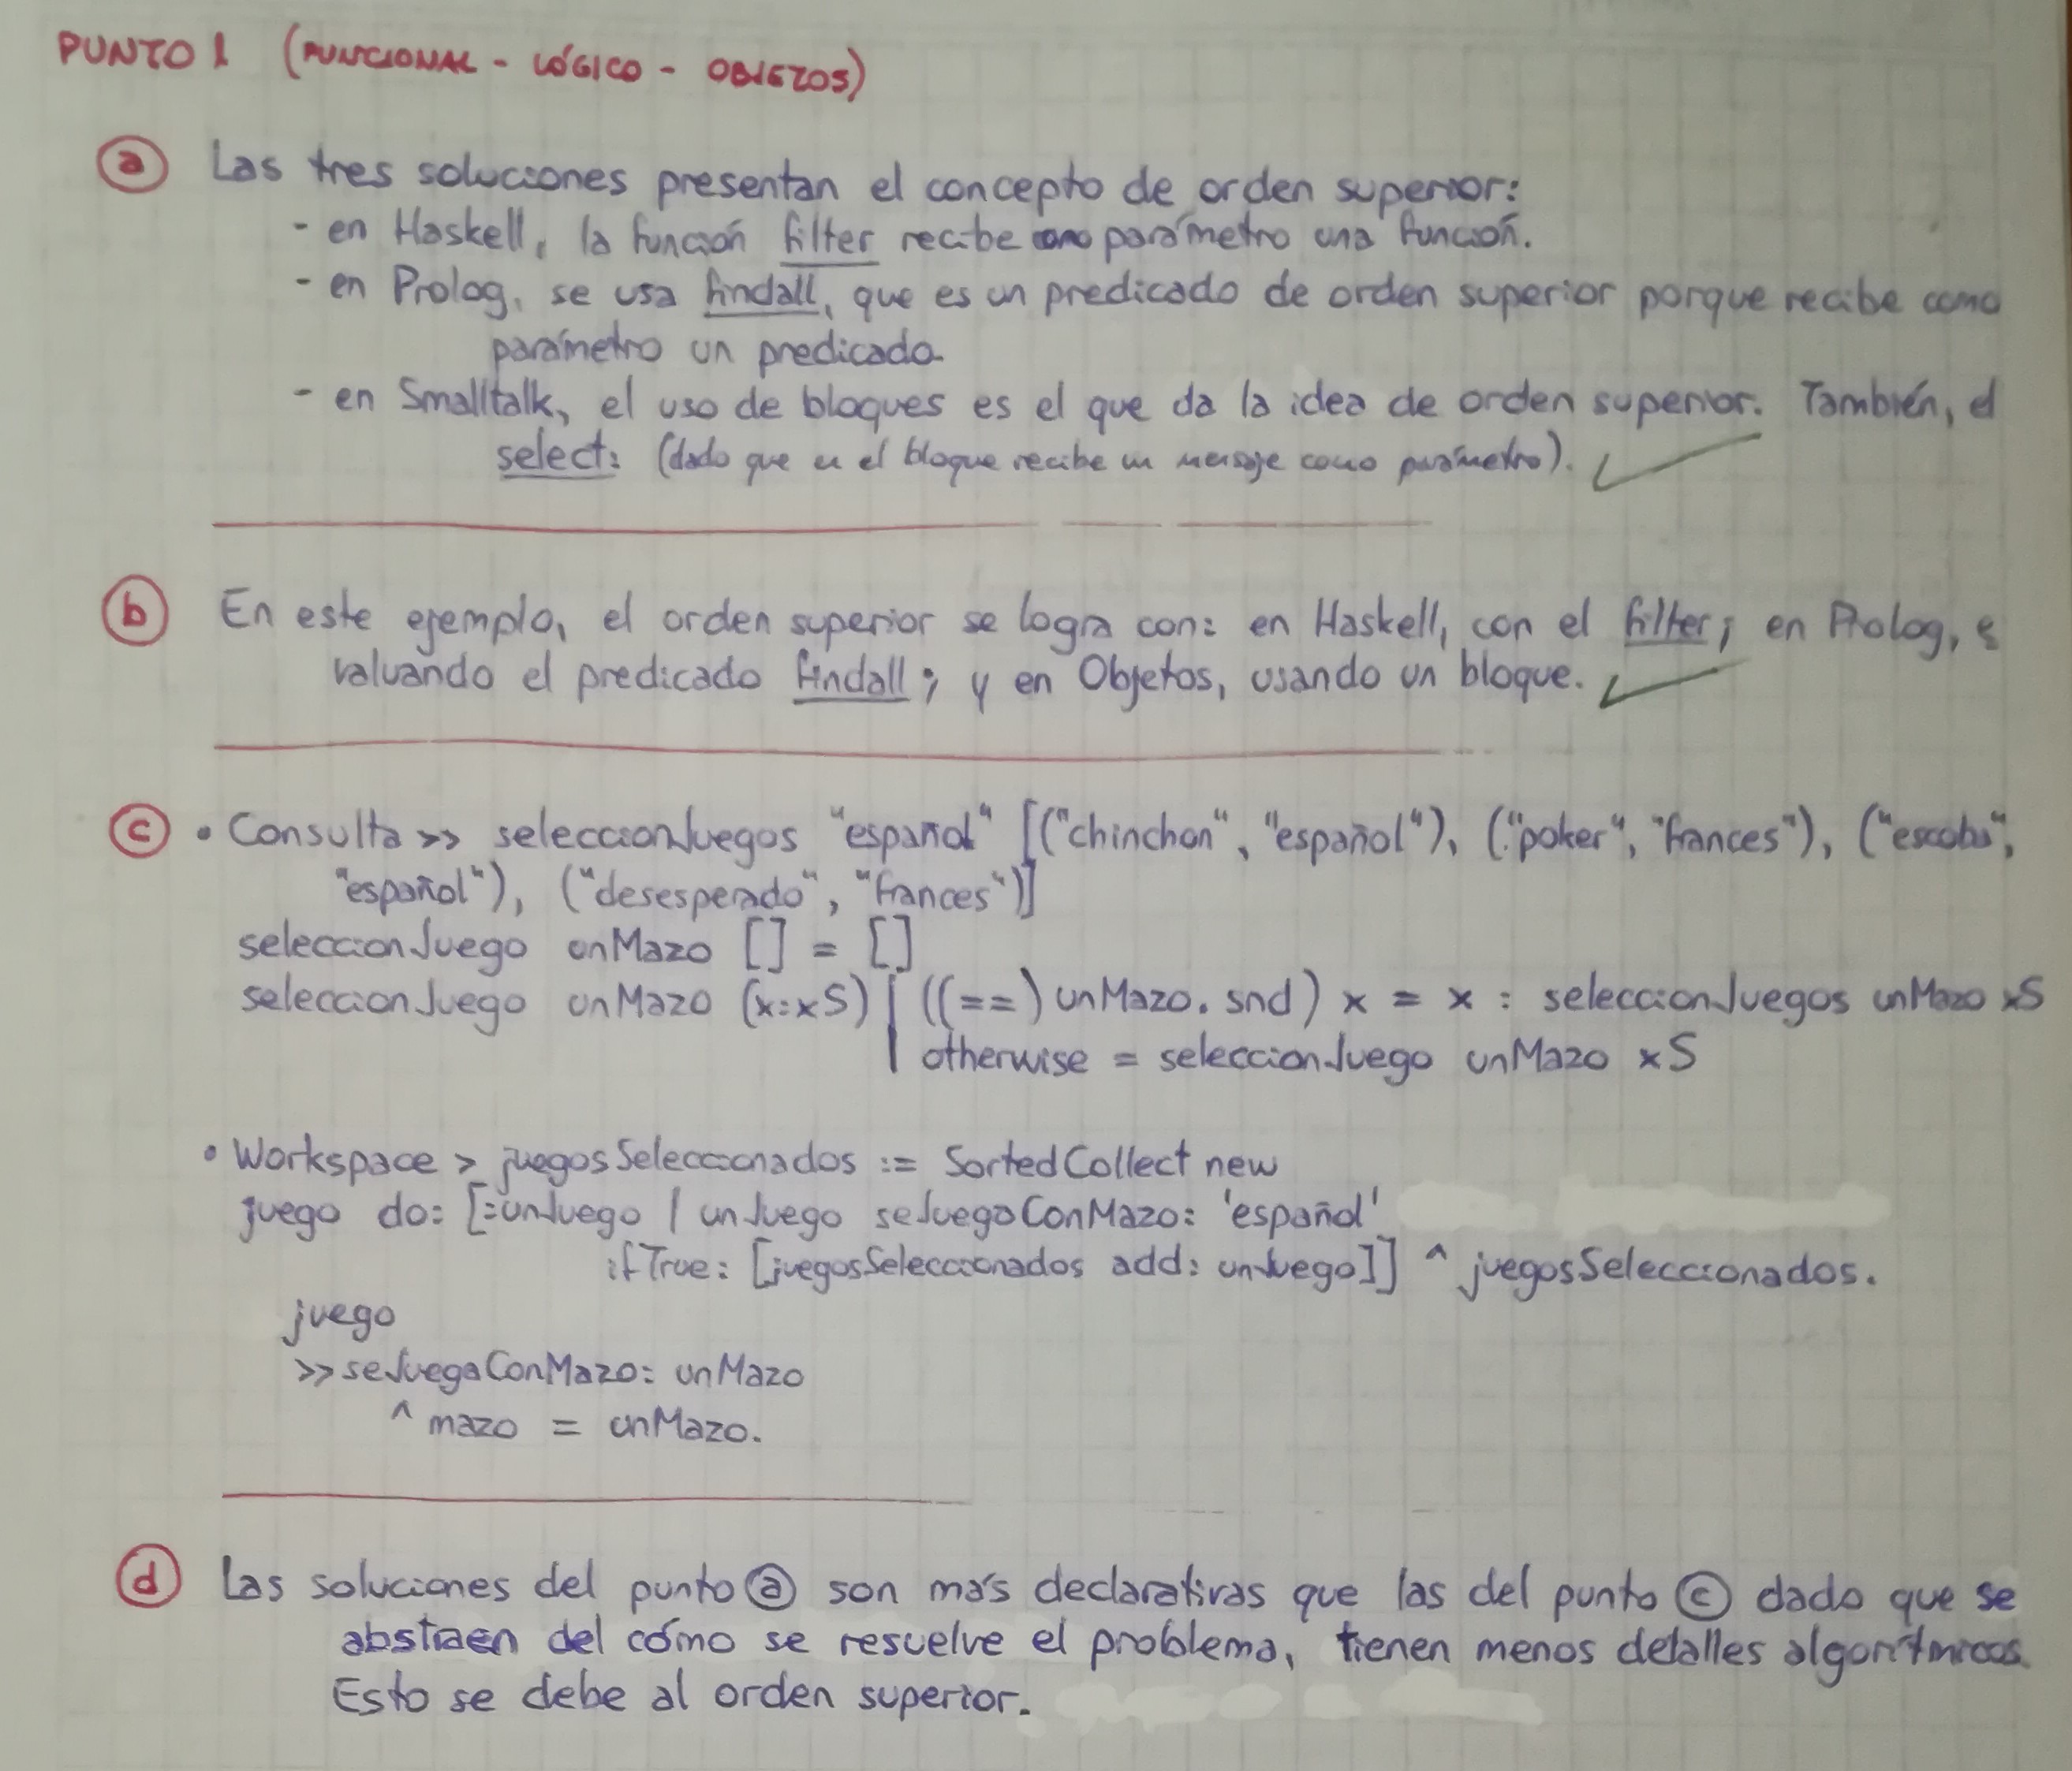 PUNTO 1 (FUNCIONAL - LÓGICO - OBJETOS)
a Las tres soluciones presentan el concepto de orden superior:
- en Haskell, la función filter recibe como parámetro una función.
- en Prolog, se usa findall, que es un predicado de orden superior porque recibe como
parámetro un predicado.
- en Smalltalk, el uso de bloques es el que da la idea de orden superior. También, el
select: (dado que en el bloque recibe un mensaje como parámetro).
b En este ejemplo, el orden superior se logra con: en Haskell, con el filter; en Prolog, e
valuando el predicado findall; y en Objetos, usando un bloque.
c • Consulta >> seleccionJuegos "español" [("chinchon", "español"), ("poker", "frances"), ("escoba",
"español"), ("desesperado", "frances")]
seleccionJuego unMazo [] = []
seleccionJuego unMazo (x:xS) | ((==) unMazo. snd) x = x : seleccionJuegos unMazo xS
| otherwise = seleccionJuego unMazo xS
• Workspace > juegosSeleccionados := SortedCollect new
juego do: [:unJuego | unJuego seJuegoConMazo: 'español'
ifTrue: [juegosSeleccionados add: unJuego]] ^ juegosSeleccionados.
juego
>> seJuegaConMazo: unMazo
^ mazo = unMazo.
d Las soluciones del punto a son más declarativas que las del punto c dado que se
abstraen del cómo se resuelve el problema, tienen menos detalles algorítmicos.
Esto se debe al orden superior.